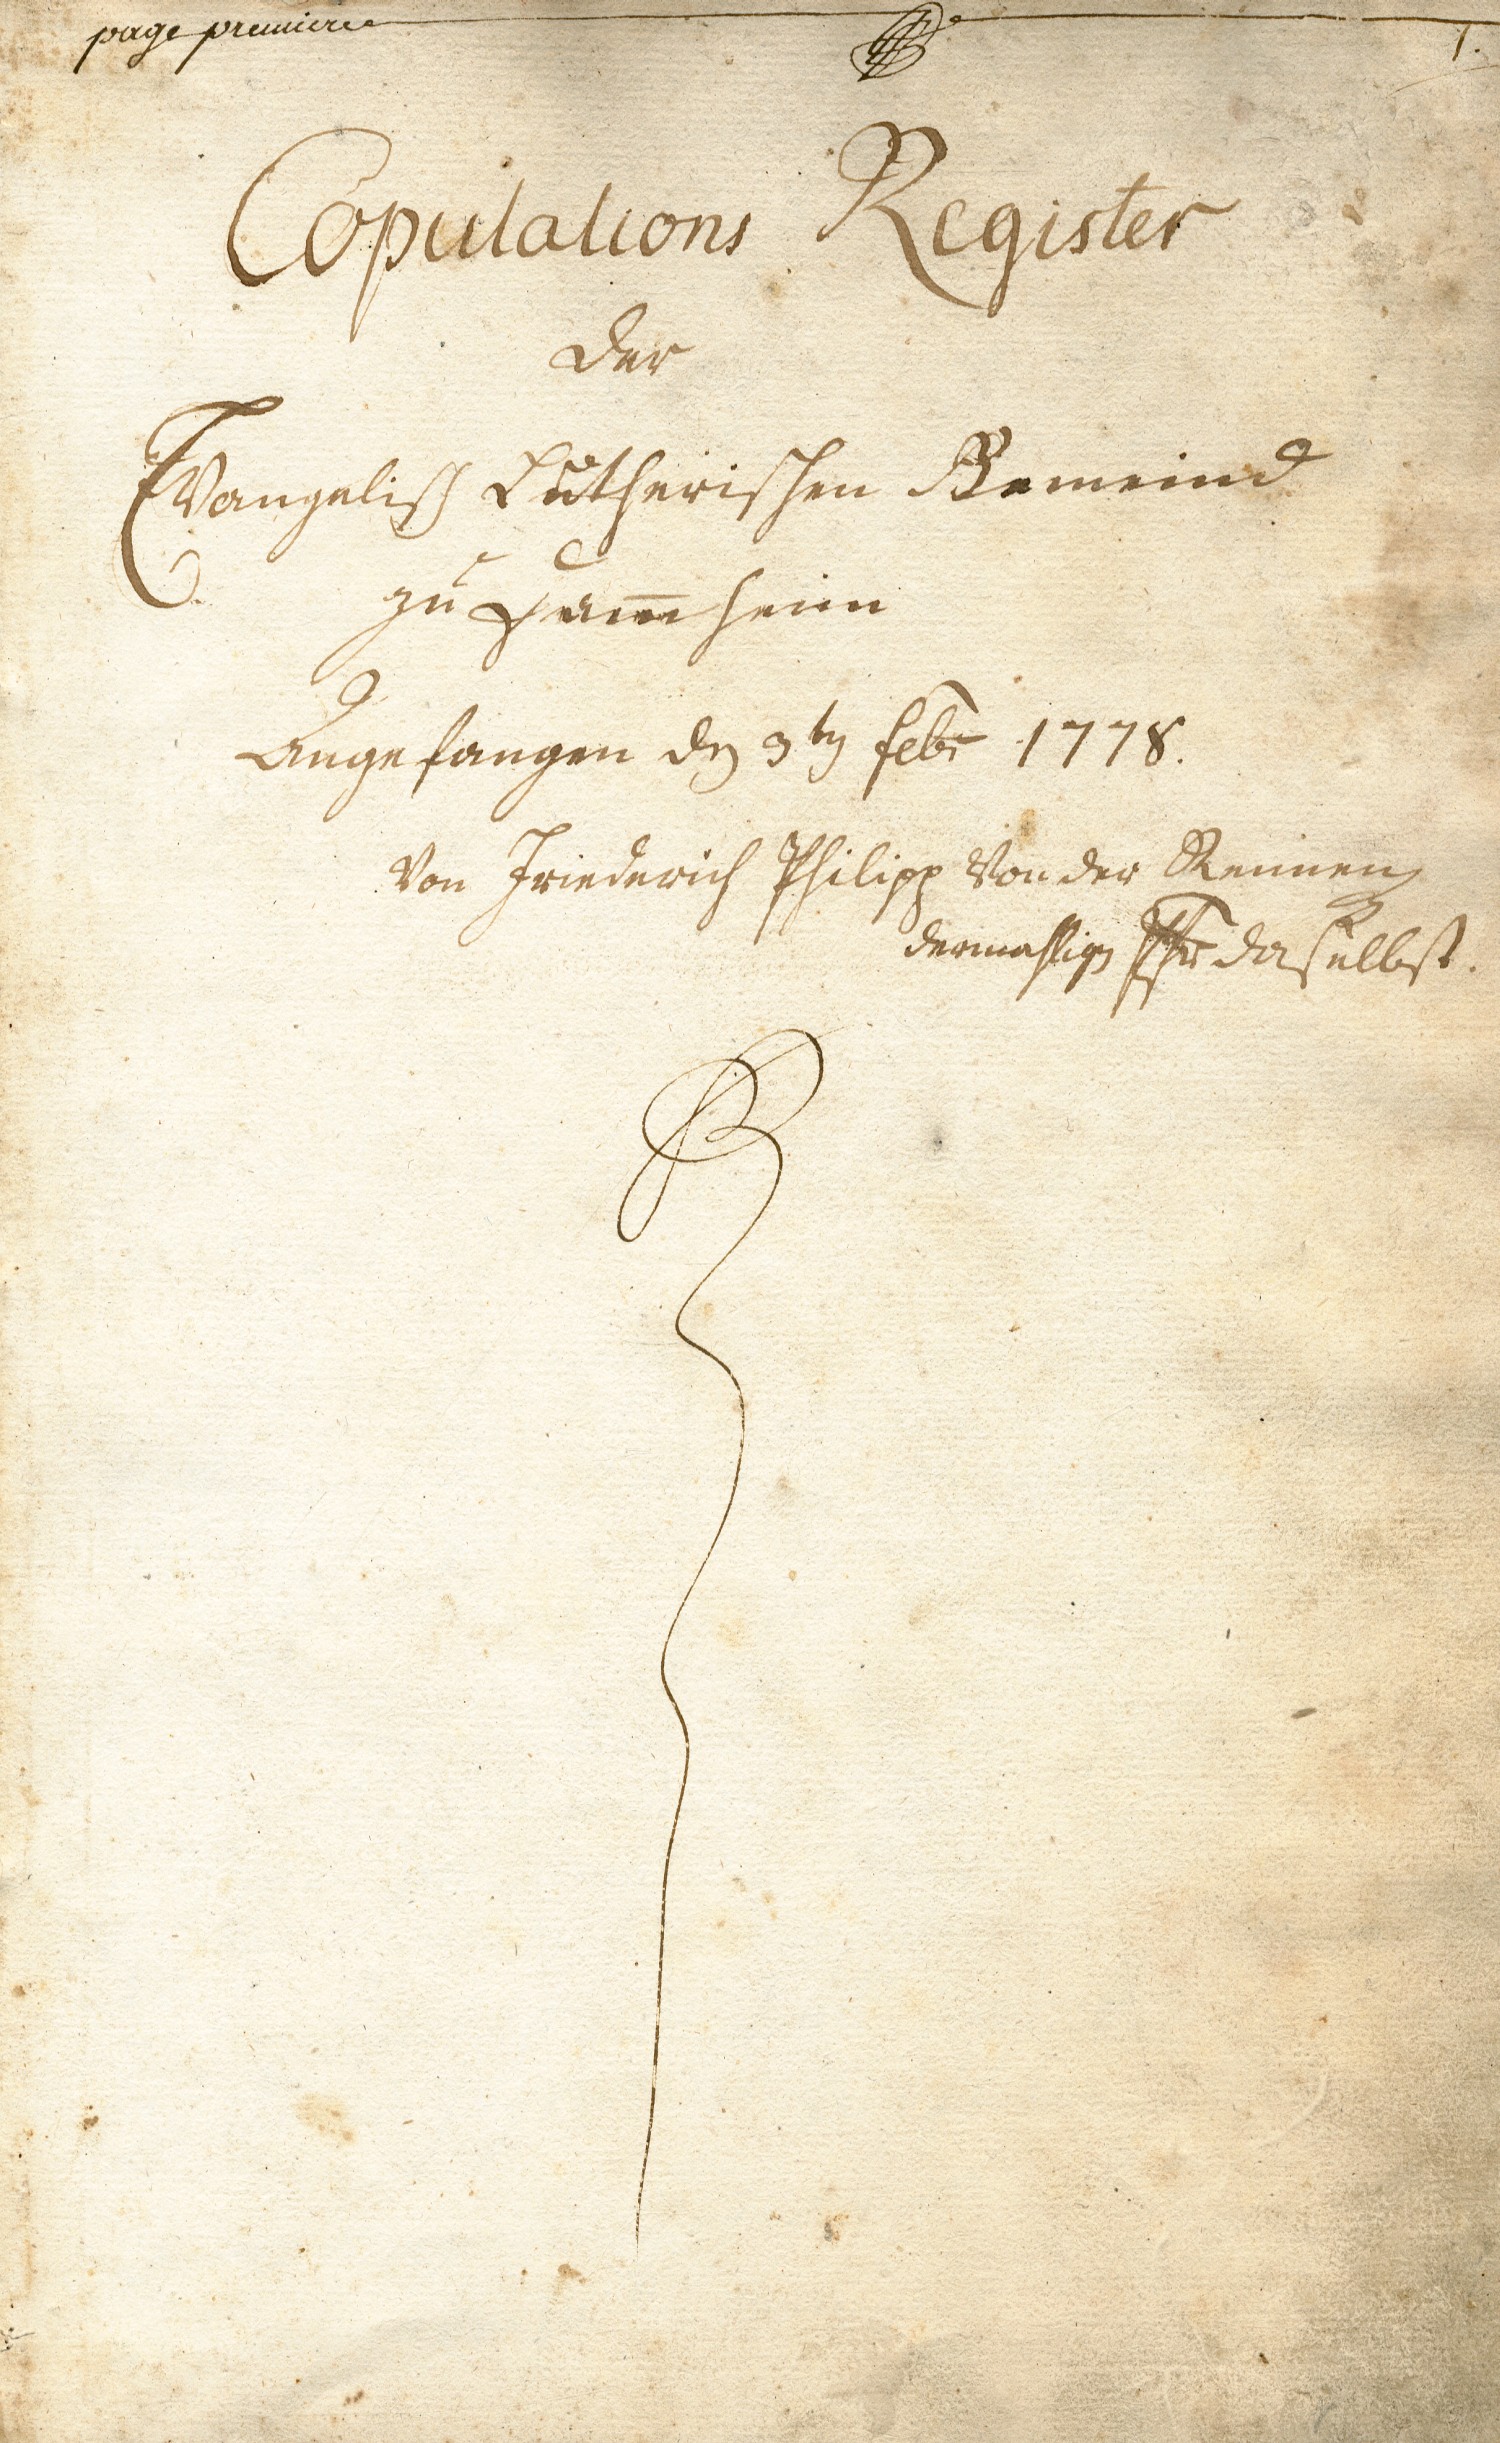 page premiere
1.
Copulations Register
der
Evangelisch Lutherischen Gemeind
zu
Angefangen den 3ten Febr 1778.
von Friederich Philipp von der
dermahlign Pfr daselbst.